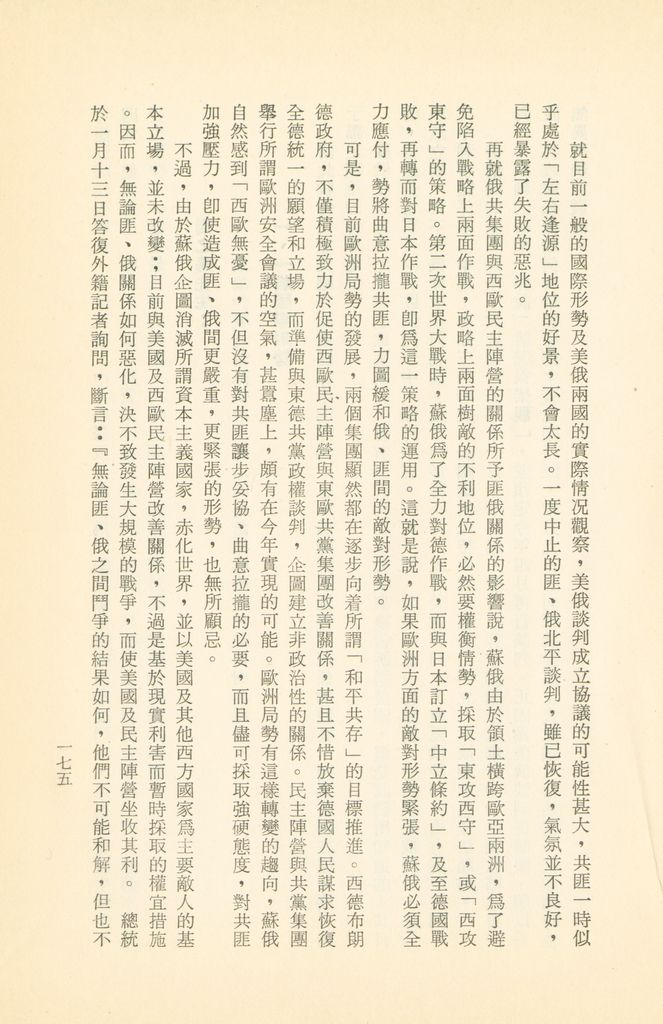 就目前一般的國際形勢及美俄兩國的實際情況觀察，美俄談判成立協議的可能性甚大，共匪一時似
乎處於「左右逢源」地位的好景，不會太長。一度中止的匪、俄北平談判，雖已恢復，氣氛並不良好，
已經暴露了失敗的惡兆。
再就俄共集團與西歐民主陣營的關係所予匪俄關係的影響說，蘇俄由於領土橫跨歐亞兩洲，爲了避
免陷入戰略上兩面作戰，政略上兩面樹敵的不利地位，必然要權衡情勢，採取「東攻西守」，或「西攻
東守」的策略。第二次世界大戰時，蘇俄爲了全力對德作戰，而與日本訂立「中立條約」，及至德國戰
敗，再轉而對日本作戰，卽爲這一策略的運用。這就是說，如果歐洲方面的敵對形勢緊張，蘇俄必須全
力應付，勢將曲意拉攏共匪，力圖緩和俄、匪間的敵對形勢。
可是，目前歐洲局勢的發展，兩個集團顯然都在逐步向着所謂「和平共存」的目標推進。西德布朗
德政府，不僅積極致力於促使西歐民主陣營與東歐共黨集團改善關係，甚且不惜放棄德國人民謀求恢復
全德統一的願望和立場，而準備與東德共黨政權談判，企圖建立非政治性的關係。民主陣營與共黨集團
舉行所謂歐洲安全會議的空氣，甚囂塵上，頗有在今年實現的可能。歐洲局勢有這樣轉變的趨向，蘇俄
自然感到「西歐無憂」，不但沒有對共匪讓步妥協、曲意拉攏的必要，而且儘可採取強硬態度，對共匪
加強壓力，卽使造成匪、俄間更嚴重，更緊張的形勢，也無所顧忌。
不過，由於蘇俄企圖消滅所謂資本主義國家，赤化世界，並以美國及其他西方國家爲主要敵人的基
本立場，並未改變；目前與美國及西歐民主陣營改善關係，不過是基於現實利害而暫時採取的權宜措施
。因而，無論匪、俄關係如何惡化，決不致發生大規模的戰爭，而使美國及民主陣營坐收其利。　總統
於一月十三日答復外籍記者詢問，斷言：『無論匪、俄之間鬥爭的結果如何，他們不可能和解，但也不
一七五